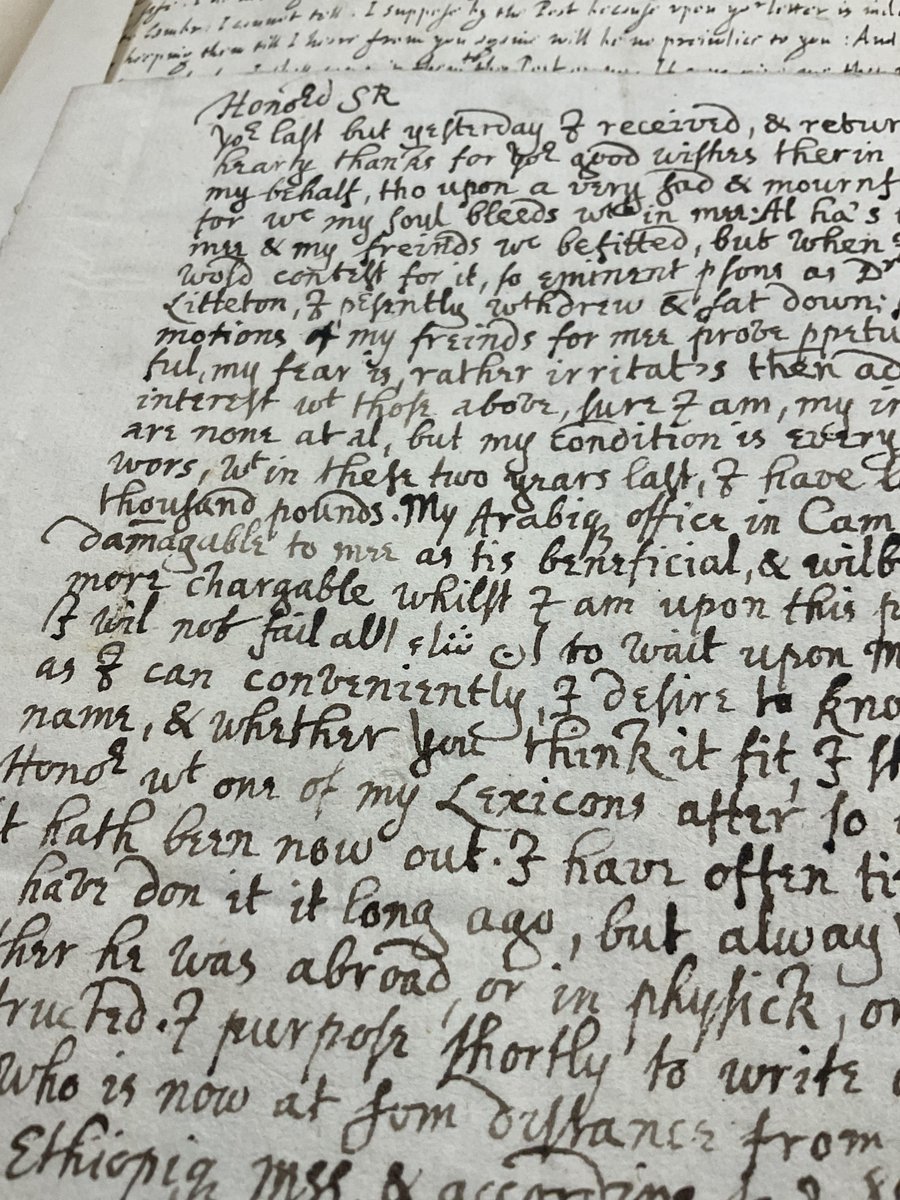 to Combr: I commit tell. I suppose by the Post because upon yor letter is
keeping them till I heare from you againe will be no prejudice to you: And
Honored SR
yor last but yesterday I received, & retur
hearty thanks for yor good wishes therin
my behalf, tho upon a very sad & mournf
for wc my soul bleeds wth in mee: Al ha's
mee & my freinds wc befitted, but when
wold contest for it, so eminent psons as Dr
Litteton, I psently wthdrew & sat down:
motions of my freinds for mee probe ppetu
ful, my fear is, rather irritates then ad
interest wt those above, sure I am, my in
are none at al, but my condition is every
wors, wt in these two years last, I have
thousand pounds. My Arabiq office in Cam
damagable to mee as tis beneficial, & wilb
more chargable whilst I am upon this p
I wil not fail to wait upon M
as I can conveniently, I desire to kno
name, & whether you think it fit, I sh
Honor wt one of my Lexicons after so
t hath been now out. I have often ti
have don it it long ago, but alway
ther he was abroad, or in physick, or
tructed. I purpose shortly to write
who is now at som distance from
Ethiopiq mss & according